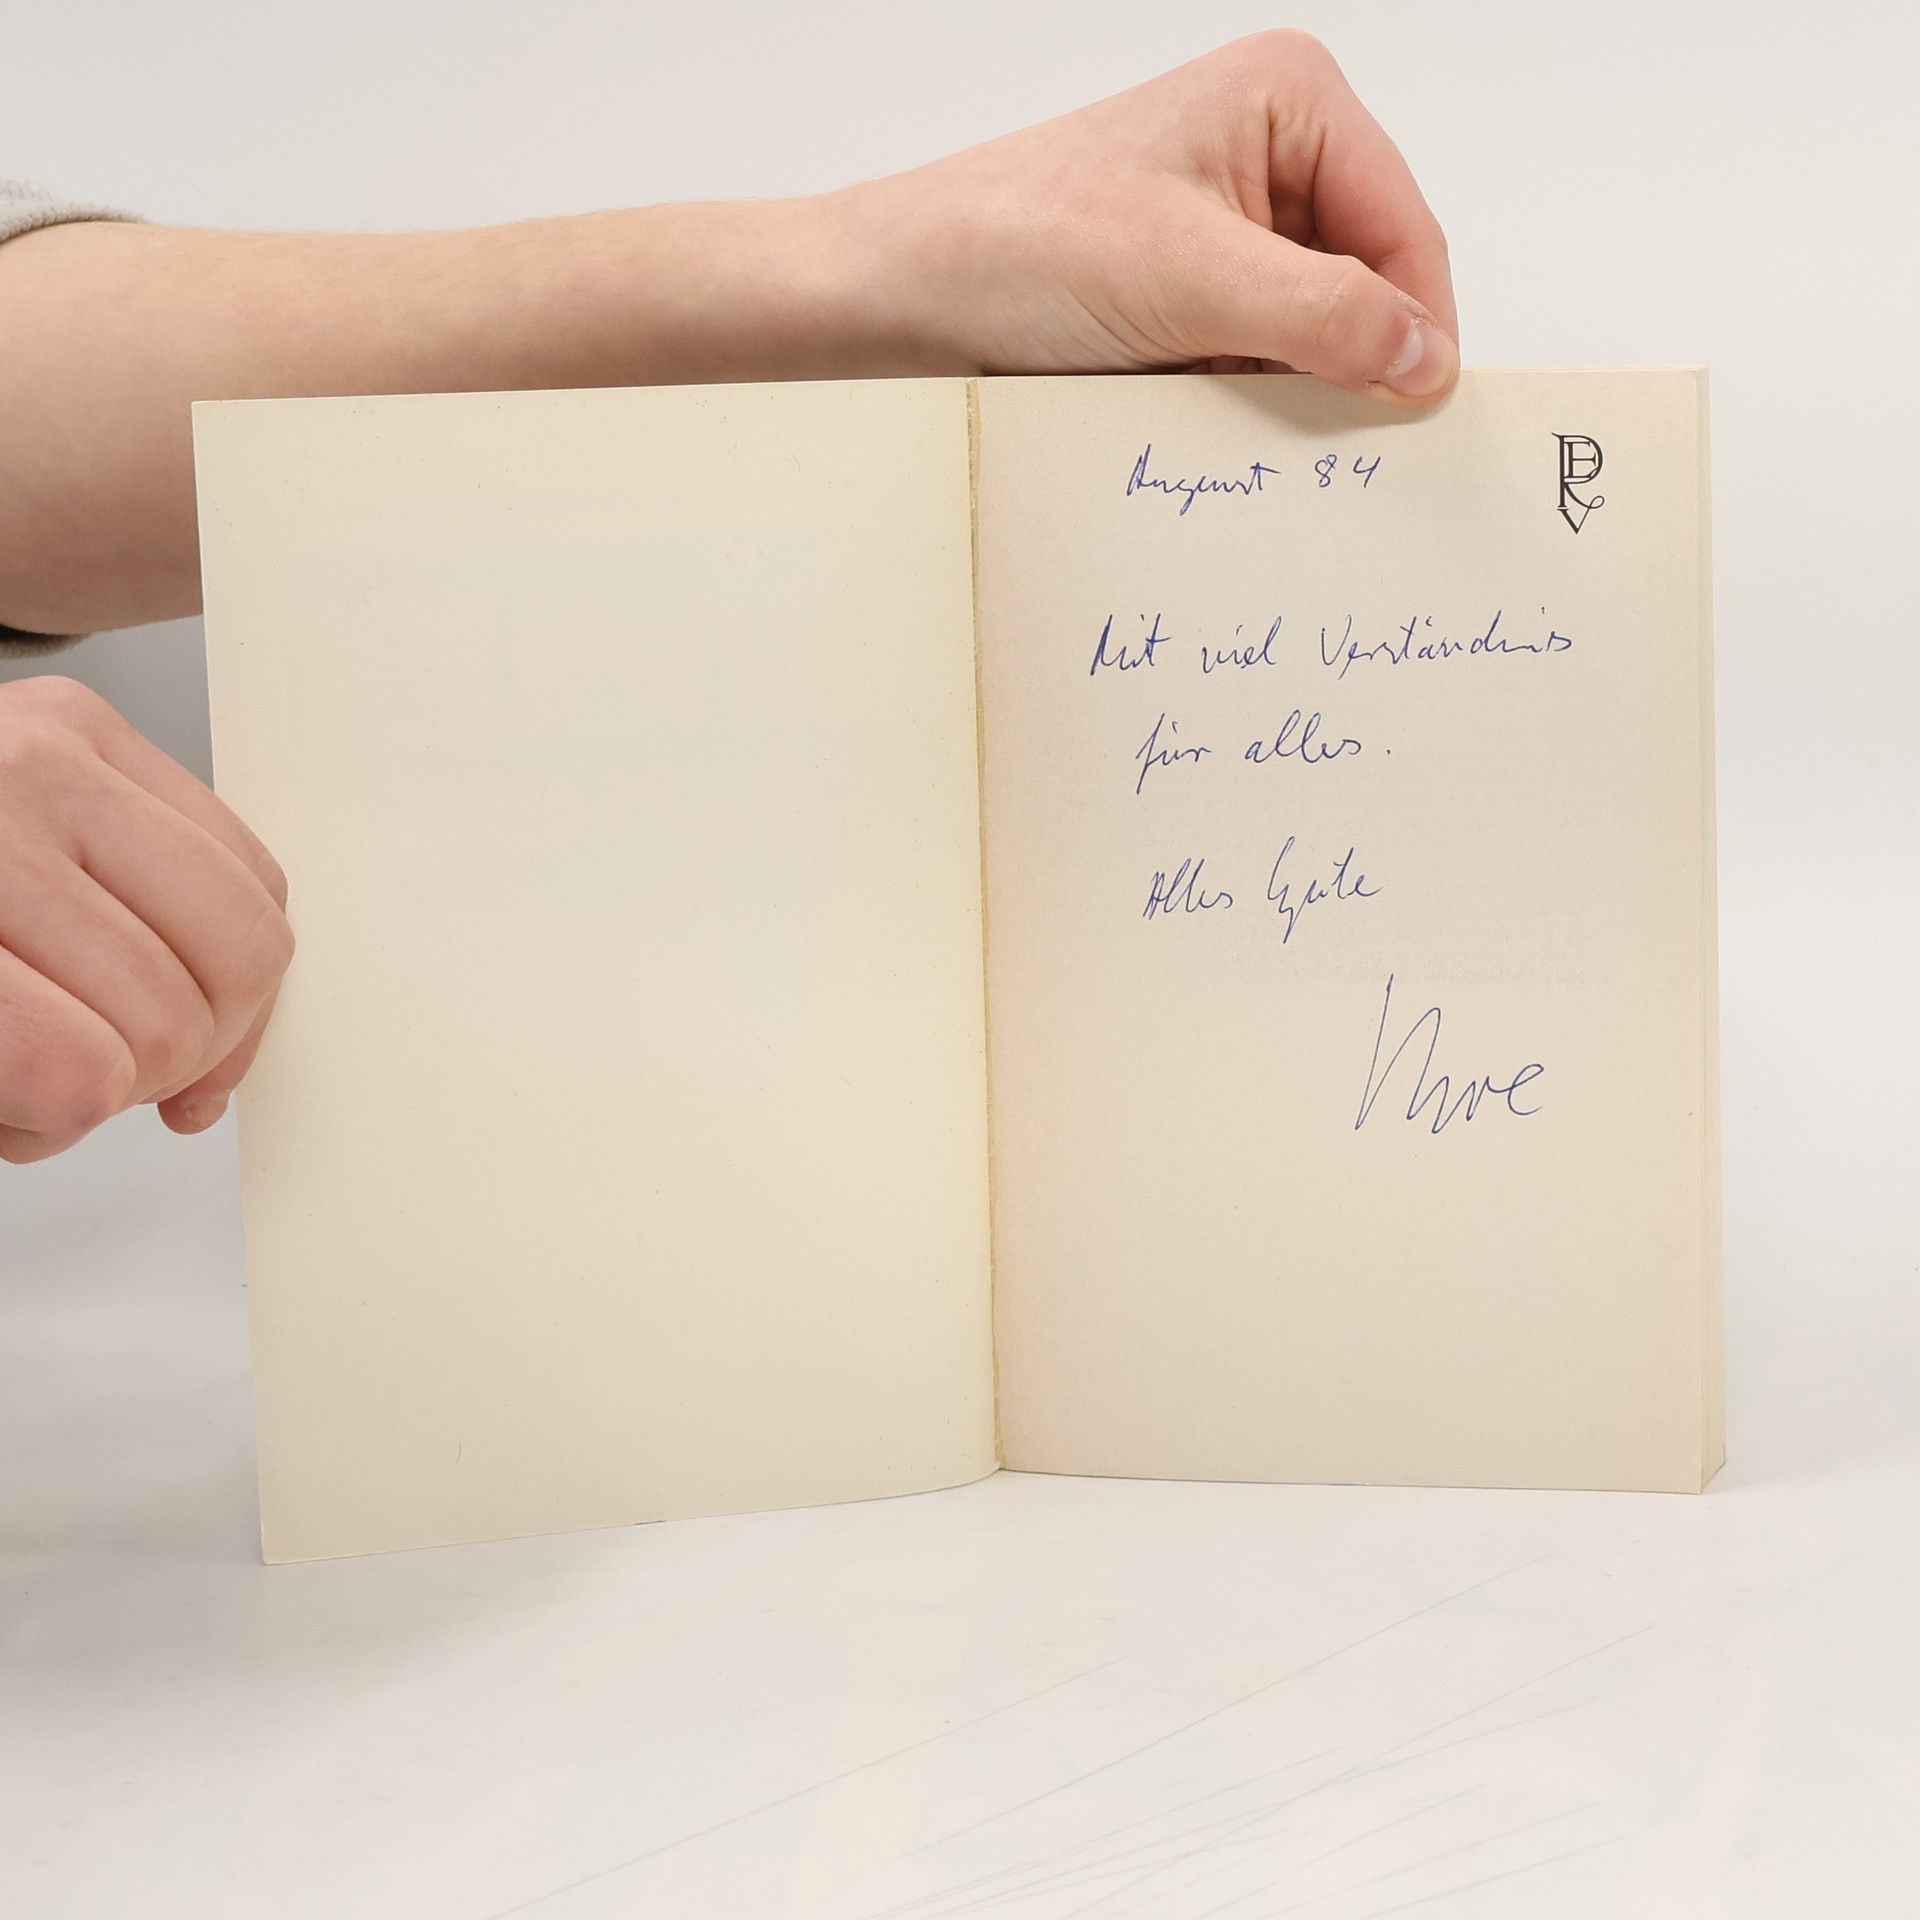 August 84
Mit viel Verständnis
für alles.
Alles Gute